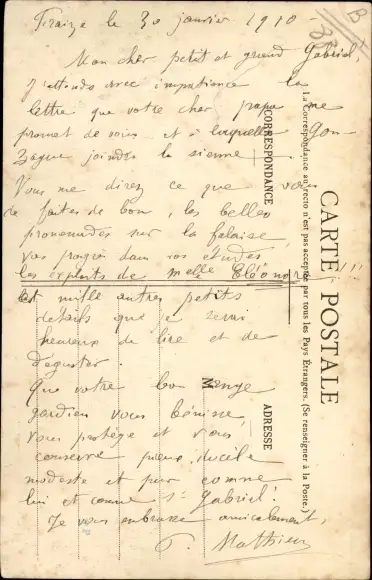 Fraize le 30 janvier 1910
Mon cher petit et grand Gabriel,
J'attends avec impatience la
lettre que votre cher papa me
promet de vous et à laquelle Gon-
zague joindra la sienne.
Vous me direz ce que vous
faites de bon, les belles
promenades sur la falaise,
vos progrès dans vos études
les exploits de Melle Eléonore !!!
et mille autres petits
détails que je serai
heureux de lire et de
déguster.
Que votre bon ange
gardien vous bénisse,
vous protège et vous
conserve pieux, docile
modeste et pur comme
lui et comme St Gabriel !
Je vous embrasse amicalement,
Mathieu
CARTE POSTALE
La Correspondance au recto n'est pas acceptée par tous les Pays Étrangers. (Se renseigner à la Poste.)
CORRESPONDANCE
ADRESSE
M
B